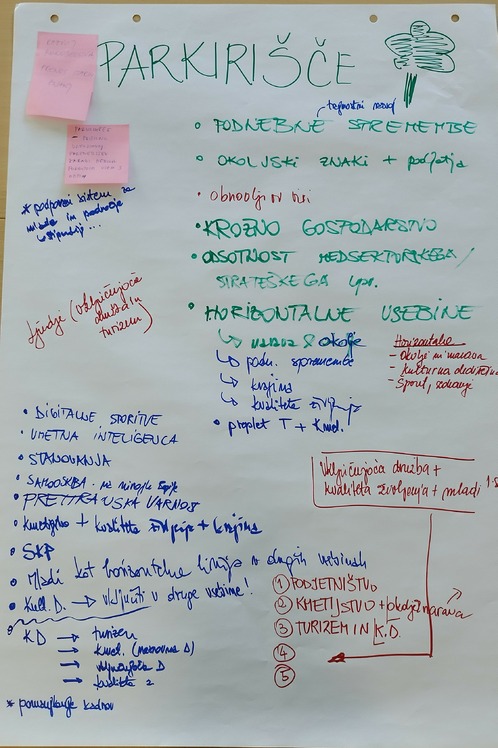 PARKIRIŠČE
PODNEBNE SPREMEMBE
OKOLJSKI ZNAKI + podjetja
KROŽNO GOSPODARSTVO
ODSOTNOST MEDSEKTORSKEGA /
STRATEŠKEGA upr.
HORIZONTALNE VSEBINE
narava & okolje
podn. spremembe
krajina
kvaliteta življenja
preplet T + Kmet.
Horizontale
- Okolje in narava
- Kulturna dediščina
- Šport, zdravje
* podporni sistem za
mlade in področje
ljudje (vključujoča
družba in
turizem)
DIGITALNE STORITVE
UMETNA INTELIGENCA
STANOVANJA
SAMOOSKRBA
PREHRANSKA VARNOST
Kmetijstvo + kvaliteta življenja + krajina
SKP
Mladi kot horizontalne linije v drugih vsebinah
Kult. D. → vključiti v druge vsebine!
KD → turizem
→ kmet. (naravna D)
→ vključujoča D
→ kvaliteta ž
* pomanjkanje kadrov
Vključujoča družba +
kvaliteta življenja + mladi
1 PODJETNIŠTVO
2 KMETIJSTVO + okolje/narava
3 TURIZEM IN K.D.
4
5